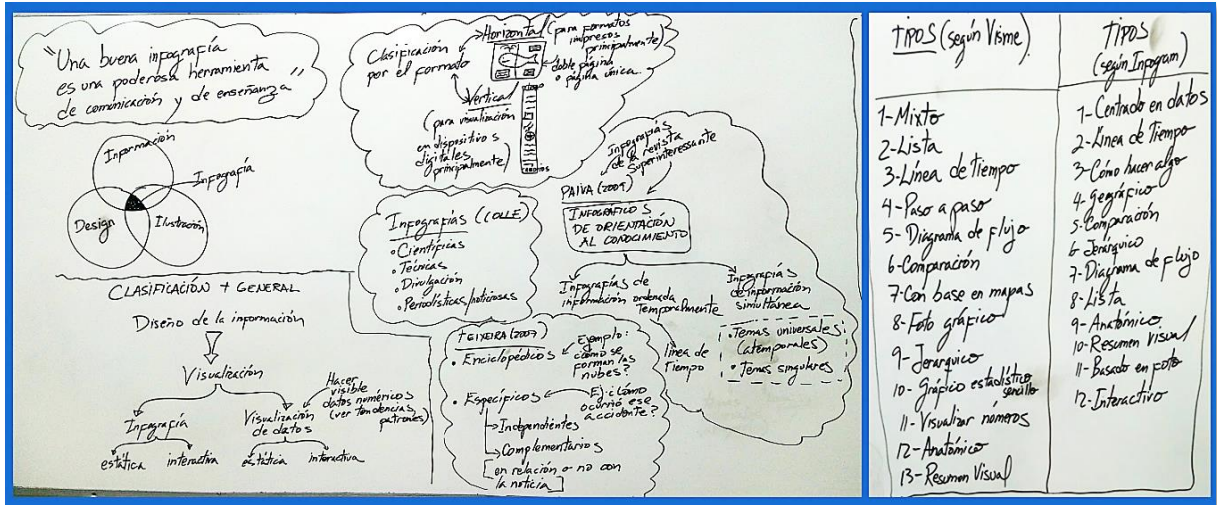 "Una buena infografía
es una poderosa herramienta
de comunicación y de enseñanza"
Información
Infografía
Design
Ilustración
CLASIFICACIÓN + GENERAL
Diseño de la información
Visualización
Infografía
Visualización
de datos
Hacer
visible
datos numéricos
(ver tendencias
patrones)
estática interactiva estática interactiva
Clasificación
por el formato
Horizontal (para formatos
impresos
principalmente)
doble página
o página única.
Vertical
(para visualización
en dispositivos
digitales
principalmente)
Infografías (COLLE)
• Científicas
• Técnicas
• Divulgación
• Periodísticas/noticiosas
Infografías
de la revista
Superinteressante
PAIVA (2009)
INFOGRÁFICOS
DE ORIENTACIÓN
AL CONOCIMIENTO
Infografías de
información ordenada
Temporalmente
línea de
Tiempo
Infografías
de información
simultánea
• Temas universales
(atemporales)
• Temas singulares
TEIXEIRA (2007)
• Enciclopédicos
Ejemplo:
¿cómo se
forman las
nubes?
• Específicos
Ej: ¿Cómo
ocurrió ese
accidente?
Independientes
Complementarios
en relación o no con
la noticia
TIPOS (según Visme)
1-Mixto
2-Lista
3-Línea de tiempo
4-Paso a paso
5-Diagrama de flujo
6-Comparación
7-Con base en mapas
8-Foto gráfico
9-Jerarquico
10-Gráfico estadístico
sencillo
11-Visualizar números
12-Anatómico
13-Resumen Visual
TIPOS
(según Infogram)
1-Centrado en datos
2-Línea de Tiempo
3-Cómo hacer algo
4-Geográfico
5-Comparación
6-Jerárquico
7-Diagrama de flujo
8-Lista
9-Anatómico
10-Resumen Visual
11-Basado en foto
12-Interactivo